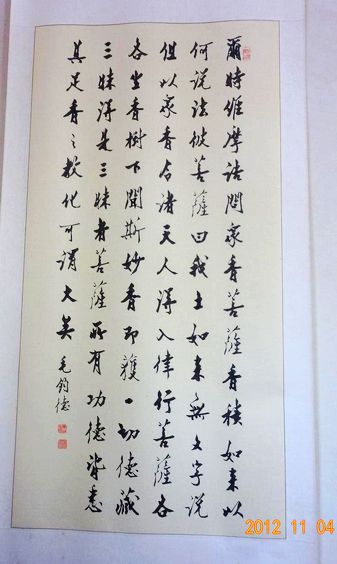 爾時維摩詰問衆香菩薩香積如来以
何説法彼菩薩曰我土如来無文字説
但以衆香令諸天人得入律行菩薩各
各坐香樹下聞斯妙香即獲一切德藏
三昧得是三昧者菩薩所有功德皆悉
具足香之教化可謂大矣
毛鈞德
2012 11 04